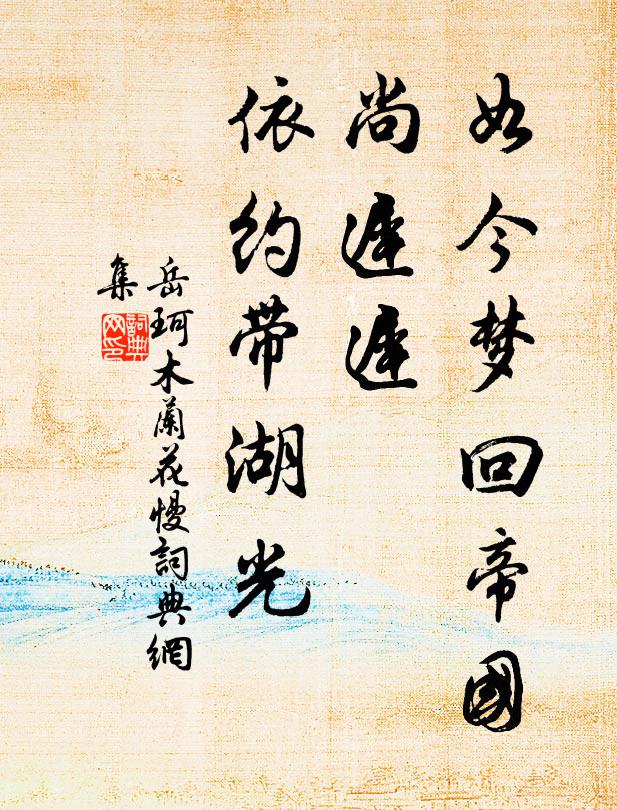 如今梦回帝國
尚遲遲
依约带湖光
岳珂木蘭花慢詞典網
集
詞典网印